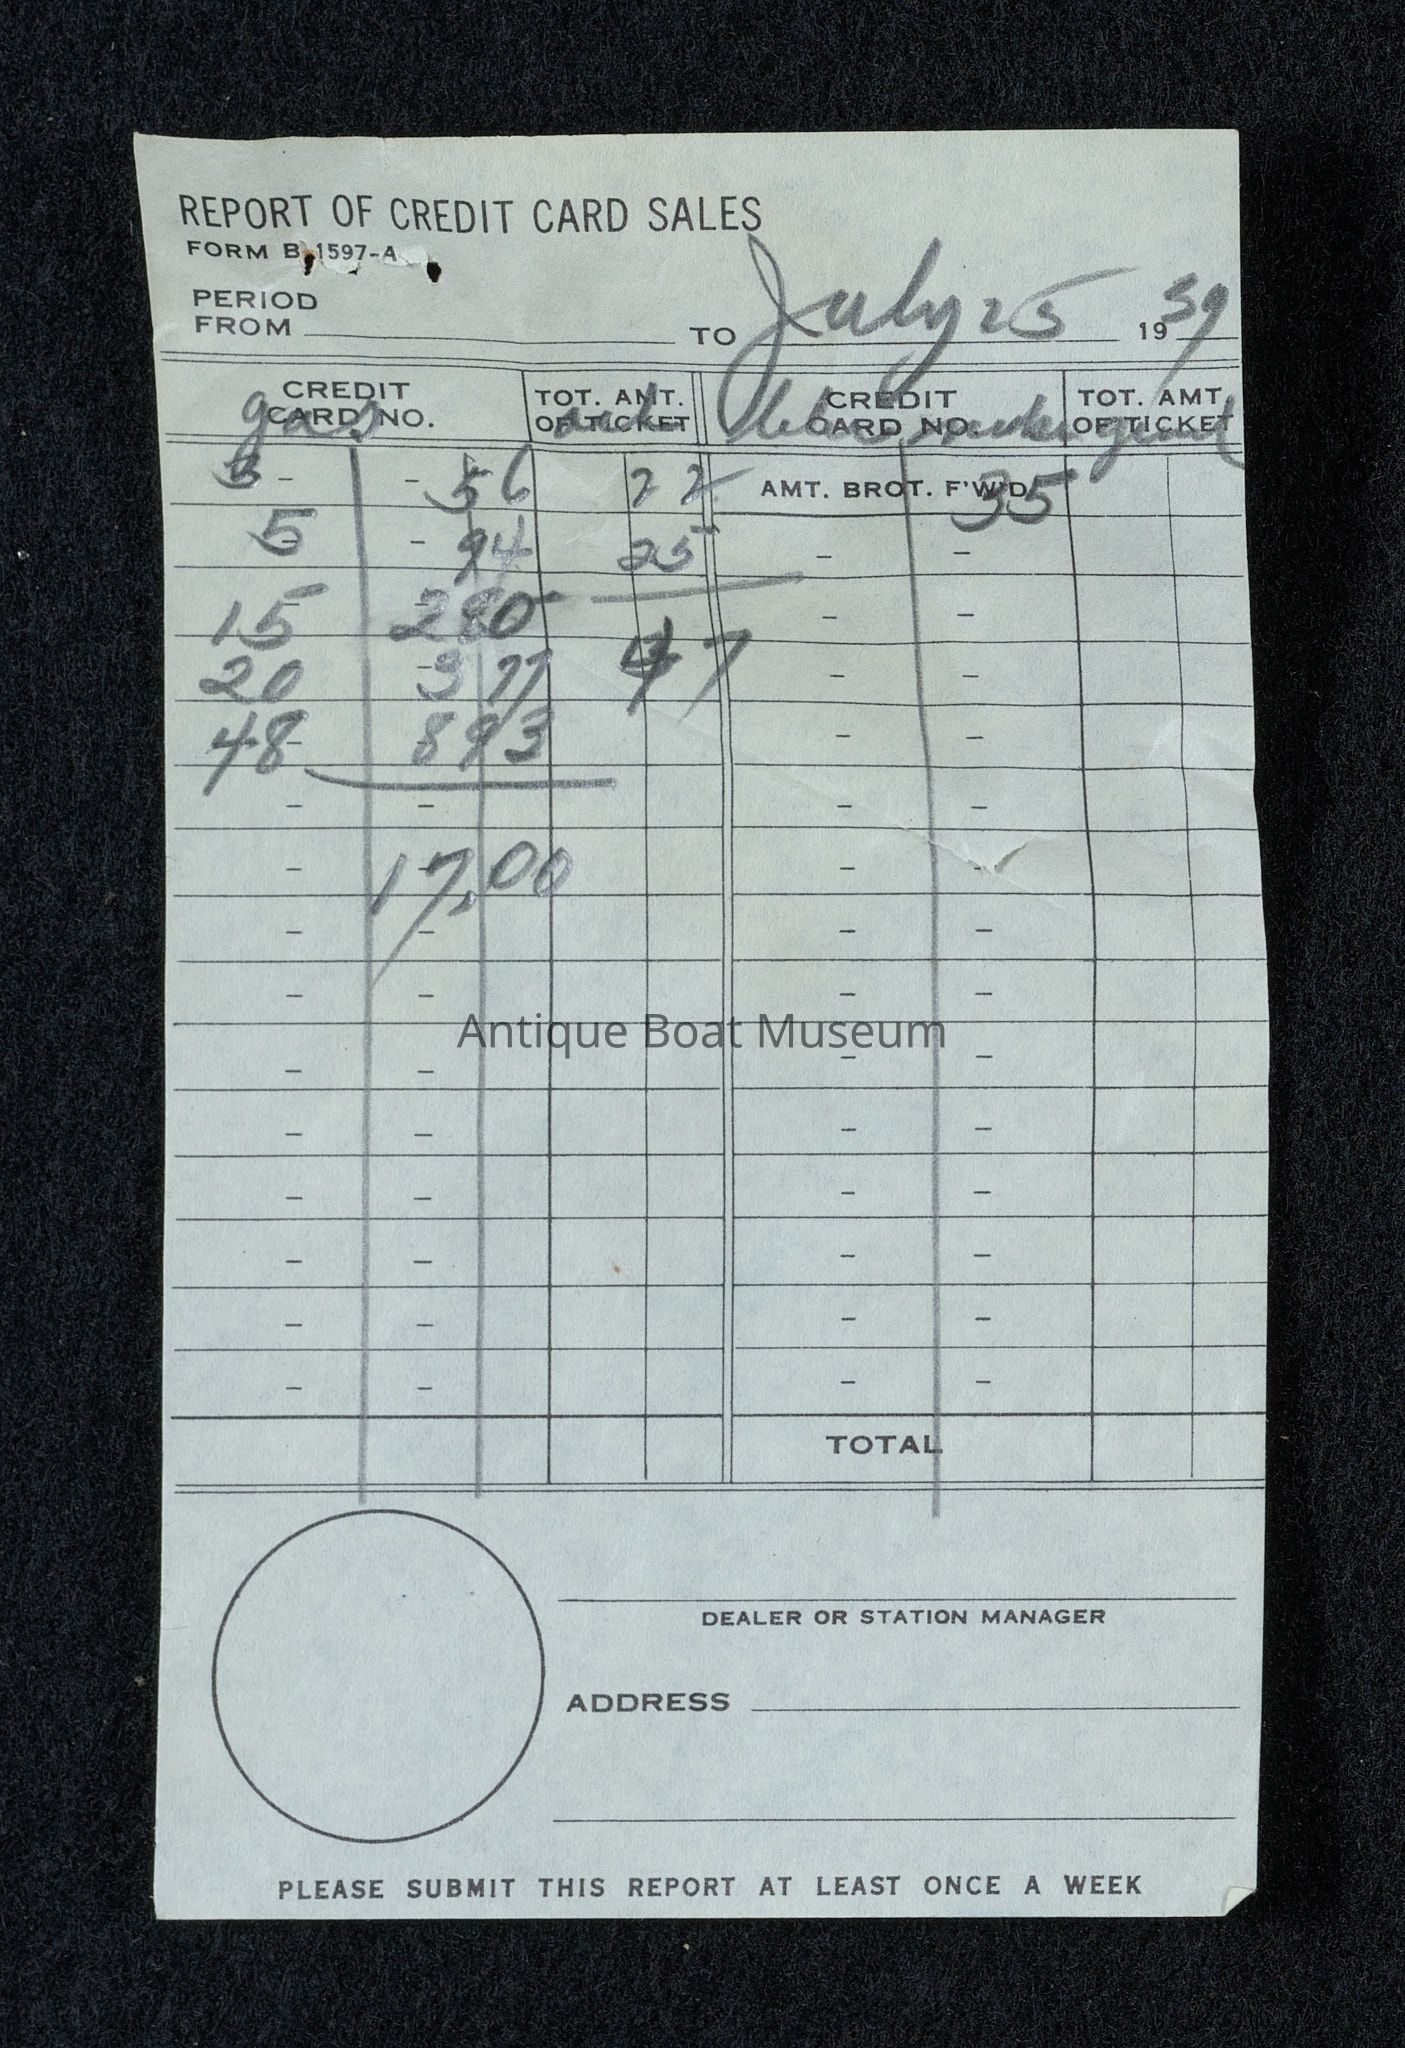 REPORT OF CREDIT CARD SALES
FORM B 1597-A
PERIOD
FROM TO July 25 1939
CREDIT CARD NO. TOT. AMT. OF TICKET CREDIT CARD NO. TOT. AMT. OF TICKET
gas
3 - - 56 22 AMT. BROT. F'W'D. 35
5 - 94 25
15 280
20 377 47
48 893
17.00
Antique Boat Museum
TOTAL
DEALER OR STATION MANAGER
ADDRESS
PLEASE SUBMIT THIS REPORT AT LEAST ONCE A WEEK